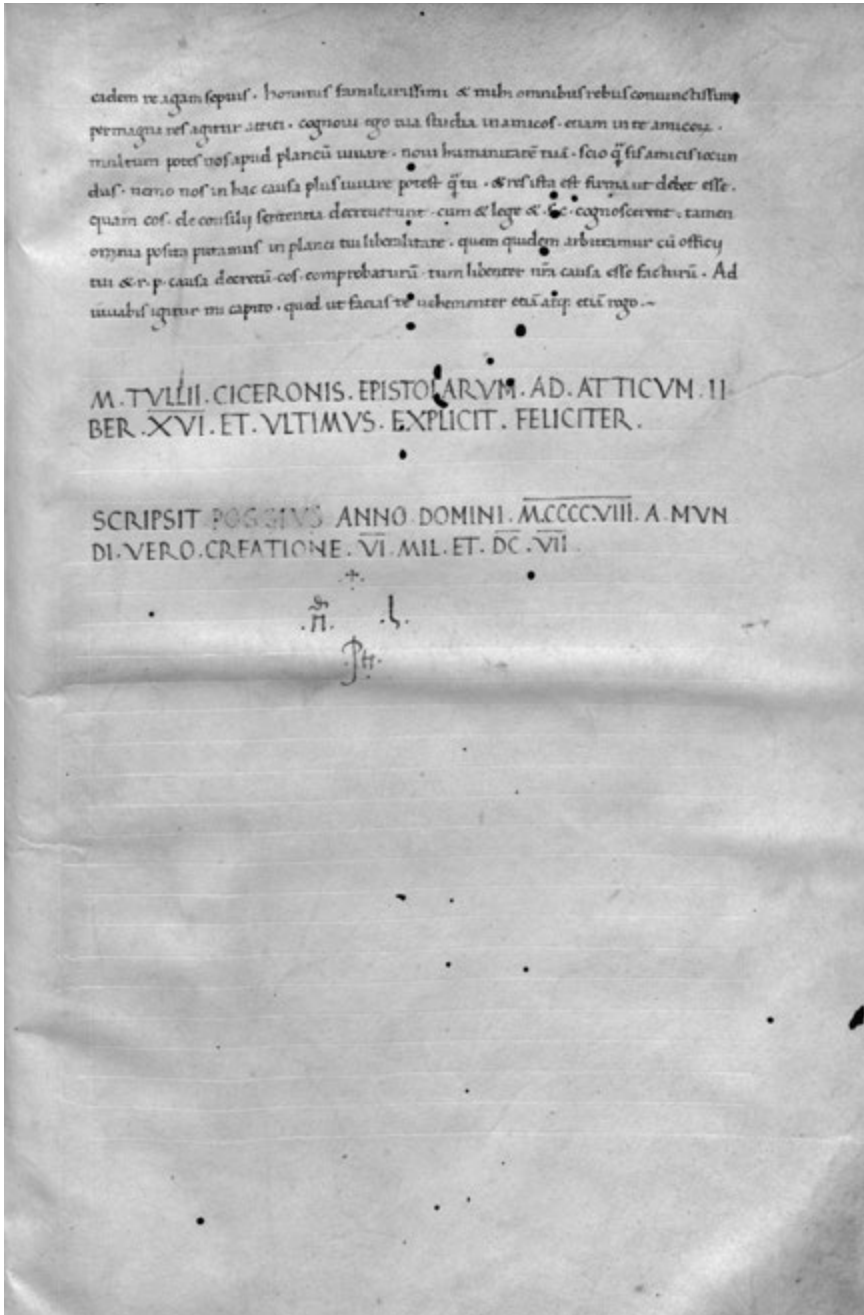 eadem re agam sepius. hominis familiarissimi & mihi omnibus rebus coniunctissimi
permagna res agitur attici. cognoui ego tua studia in amicos. etiam in te amicorum.
multum potes nos apud plancū iuuare. noui humanitatē tuā. scio q̄ sis amicis iocun
dus. nemo nos in hac causa plus iuuare potest q̄ tu. & res ista est firma ut debet esse.
quam cos. de consilij sententia decreuerunt. cum & lege & s.c. cognoscerent. tamen
omnia posita putamus in planci tui liberalitate. quem quidem arbitramur cū officij
tui & r.p. causa decretū cos. comprobaturū. tum libenter nr̄a causa esse facturū. Ad
iuuabis igitur mi capito. quod ut facias te uehementer etiā atq; etiā rogo.~
M. TVLLII. CICERONIS. EPISTOLARVM. AD. ATTICVM. LI
BER. XVI. ET. VLTIMVS. EXPLICIT. FELICITER.
SCRIPSIT POGGIVS ANNO DOMINI. M.CCCC.VIII. A MVN
DI. VERO. CREATIONE. VI MIL. ET. DC. VII